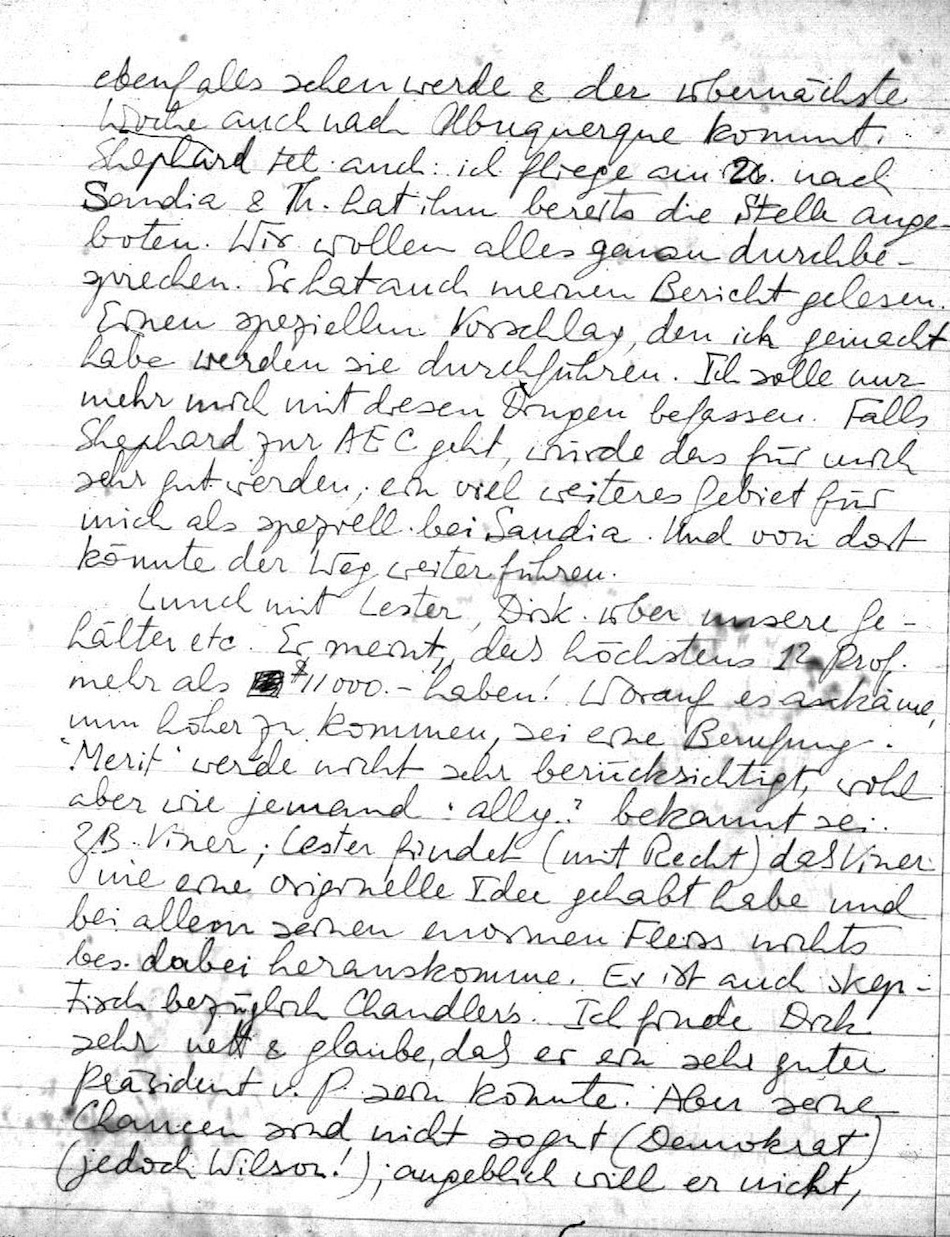 ebenfalls sehen werde & der übernächste
Woche auch nach Albuquerque kommt.
Shephard tel. auch: ich fliege am 26. nach
Sandia & Th. hat ihm bereits die Stelle ange-
boten. Wir wollen alles genau durchbe-
sprechen. Er hat auch meinen Bericht gelesen.
Einen speziellen Vorschlag, den ich gemacht
habe werden sie durchführen. Ich solle nur
mehr mich mit diesen Dingen befassen. Falls
Shephard zur AEC geht, würde das für mich
sehr gut werden; ein viel weiteres Gebiet für
mich als speziell bei Sandia. Und von dort
könnte der Weg weiter führen.
Lunch mit Lester, Disk. über unsere Ge-
hälter etc. Er meint, daß höchstens 12 Prof.
mehr als $11000.- haben! Worauf es ankäme,
um höher zu kommen, sei eine Berufung.
"Merit" werde nicht sehr berücksichtigt, wohl
aber wie jemand "ally." bekannt sei.
ZB. Viner; Lester findet (mit Recht) daß Viner
nie eine originelle Idee gehabt habe und
bei allem seinen enormen Fleiss nichts
bes. dabei herauskomme. Er ist auch skep-
tisch bezüglich Chandlers. Ich finde Dick
sehr nett & glaube, daß er ein sehr guter
Präsident v. P. sein könnte. Aber seine
Chancen sind nicht so gut (Demokrat)
(jedoch Wilson!); angeblich will er nicht,